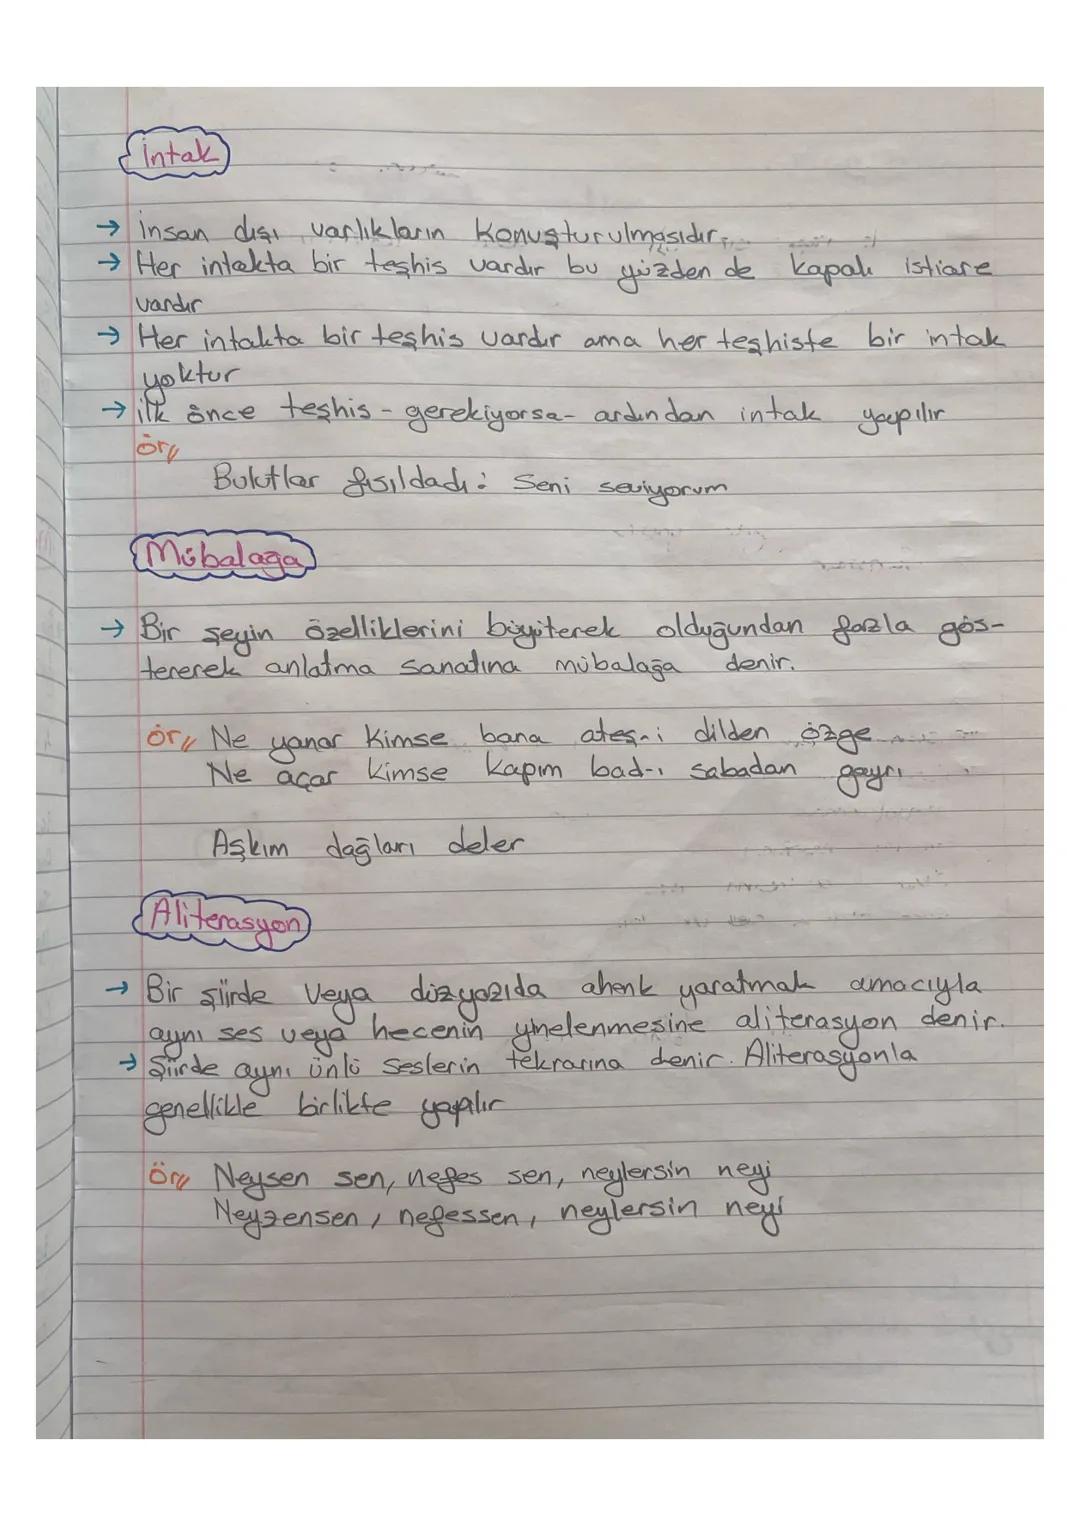 İntak
→ İnsan dışı varlıkların konuşturulmasıdır.
→ Her intakta bir teşhis vardır bu yüzden de kapalı istiare
vardır
→ Her intakta bir teşhis vardır ama her teşhiste bir intak
yoktur
→ ilk önce teşhis - gerekiyorsa - ardından intak yapılır
ör//
Bulutlar fısıldadı: Seni seviyorum
Mübalağa
→ Bir şeyin özelliklerini büyüterek olduğundan fazla gös-
tererek anlatma sanatına mübalağa denir.
ör// Ne yanar kimse bana ateş-i dilden özge
Ne açar kimse kapım bad-ı sabadan gayrı
Aşkım dağları deler
Aliterasyon
→ Bir şiirde veya düzyazıda ahenk yaratmak amacıyla
aynı ses veya hecenin yinelenmesine aliterasyon denir.
→ Şiirde aynı ünlü seslerin tekrarına denir. Aliterasyonla
genellikle birlikte yapılır
Ör// Neysen sen, nefes sen, neylersin neyi
Neyzensen, nefessen, neylersin neyi